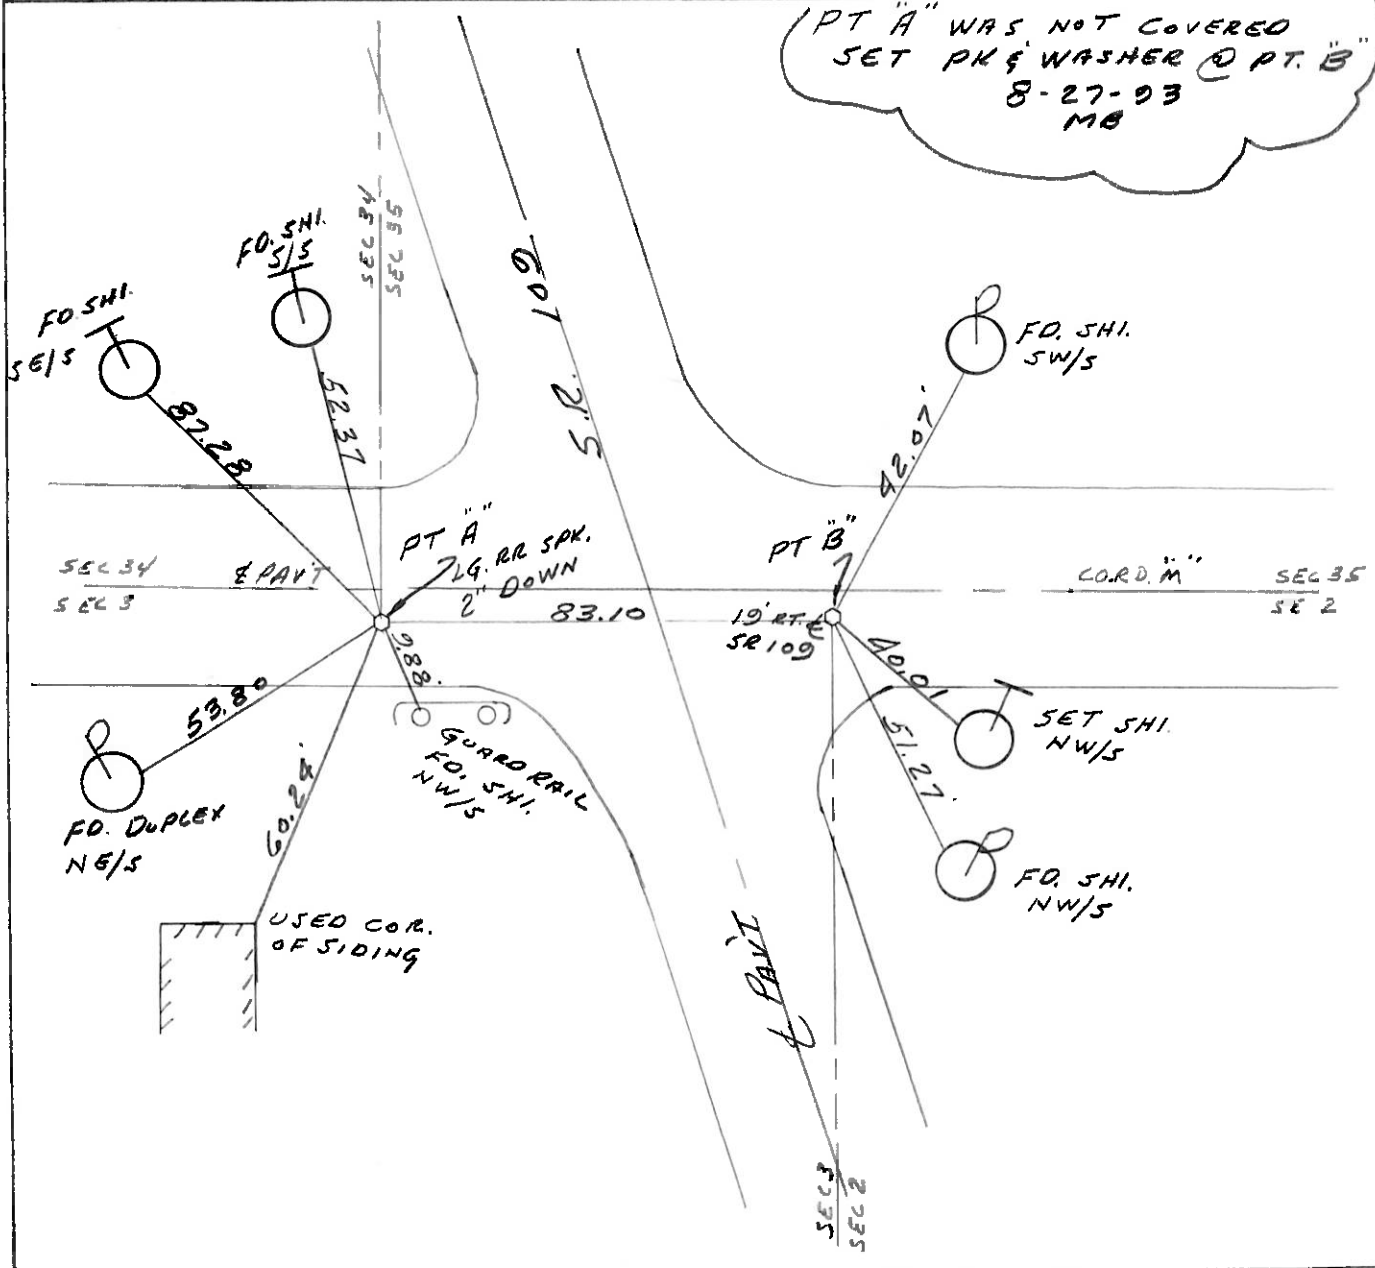 PT "A" WAS NOT COVERED
SET PK & WASHER @ PT. "B"
8-27-93
MB
SEC 34
SEC 35
FD. SHI.
S/S
FD. SHI.
SE/S
S.R. 109
FD. SHI.
SW/S
87.28
52.37
42.07'
PT "A"
LG. RR SPK.
2" DOWN
PT "B"
SEC 34
SEC 3
℄ PAV'T
CO.RD. "M"
SEC 35
SE 2
83.10
19' RT. ℄
SR 109
9.88'
40.01
53.80
51.27'
60.24'
GUARD RAIL
FD. SHI.
NW/S
SET SHI.
NW/S
FD. DUPLEX
NE/S
FD. SHI.
NW/S
USED COR.
OF SIDING
℄ PAV'T
SEC 3
SEC 2